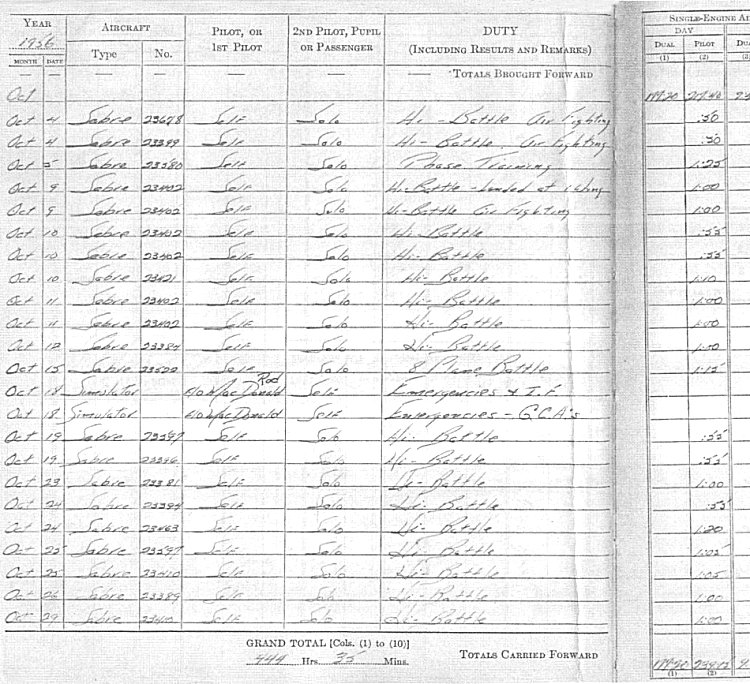 YEAR AIRCRAFT PILOT, OR 2ND PILOT, PUPIL DUTY SINGLE-ENGINE
1956 1ST PILOT OR PASSENGER (INCLUDING RESULTS AND REMARKS) DAY
MONTH DATE Type No. DUAL PILOT
(1) (2)
— — — — — — — TOTALS BROUGHT FORWARD
Oct 199:20
Oct 4 Sabre 23678 Self Solo Hi - Battle Air Fighting :50
Oct 4 Sabre 23399 Self Solo Hi - Battle, Air Fighting :50
Oct 5 Sabre 23380 Self Solo Phase Training 1:25
Oct 9 Sabre 23402 Self Solo Hi-Battle - Landed at 1:00
Oct 9 Sabre 23402 Self Solo Hi-Battle Air Fighting 1:00
Oct 10 Sabre 23402 Self Solo Hi-Battle :55
Oct 10 Sabre 23402 Self Solo Hi-Battle :55
Oct 10 Sabre 23421 Self Solo Hi-Battle 1:10
Oct 11 Sabre 23402 Self Solo Hi-Battle 1:00
Oct 11 Sabre 23402 Self Solo Hi-Battle 1:00
Oct 12 Sabre 23384 Self Solo Hi-Battle
Oct 15 Sabre Self Solo 8 Plane Battle 1:15
Oct 18 Simulator F/O MacDonald Self Emergencies & I.F
Oct 18 Simulator F/O MacDonald Self Emergencies - G.C.A's
Oct 19 Sabre 23597 Self Solo Hi- Battle :55
Oct 19 Sabre 23396 Self Solo Hi- Battle :55
Oct 23 Sabre 23381 Self Solo Hi- Battle 1:00
Oct 24 Sabre 23394 Self Solo Hi- Battle :55
Oct 24 Sabre 23463 Self Solo Hi- Battle 1:20
Oct 25 Sabre 23597 Self Solo Hi- Battle 1:05
Oct 25 Sabre 23410 Self Solo Hi- Battle 1:05
Oct 26 Sabre 23389 Self Solo Hi- Battle 1:00
Oct 29 Sabre Self Solo Hi- Battle 1:00
GRAND TOTAL [Cols. (1) to (10)]
444 Hrs. 35 Mins. TOTALS CARRIED FORWARD 199:20
(1) (2)